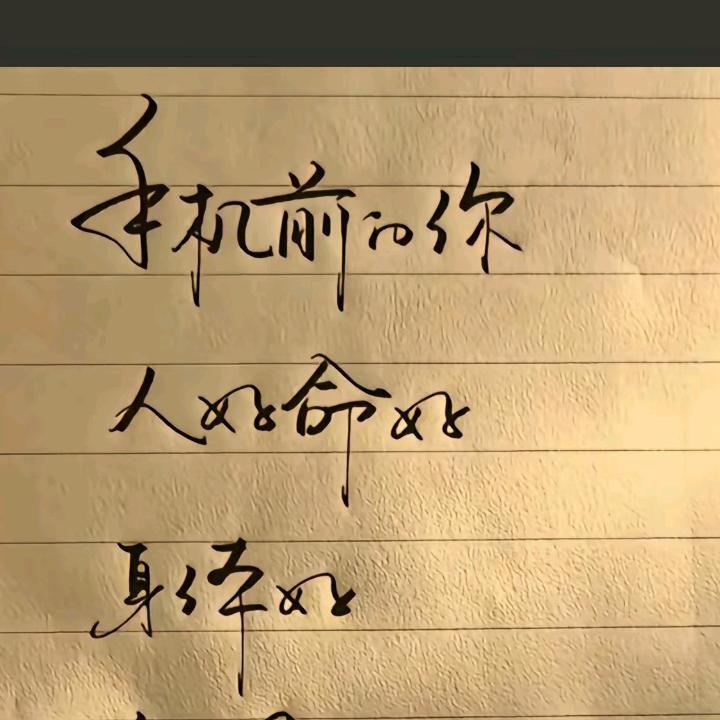 手机前的你
人好命好
身体好